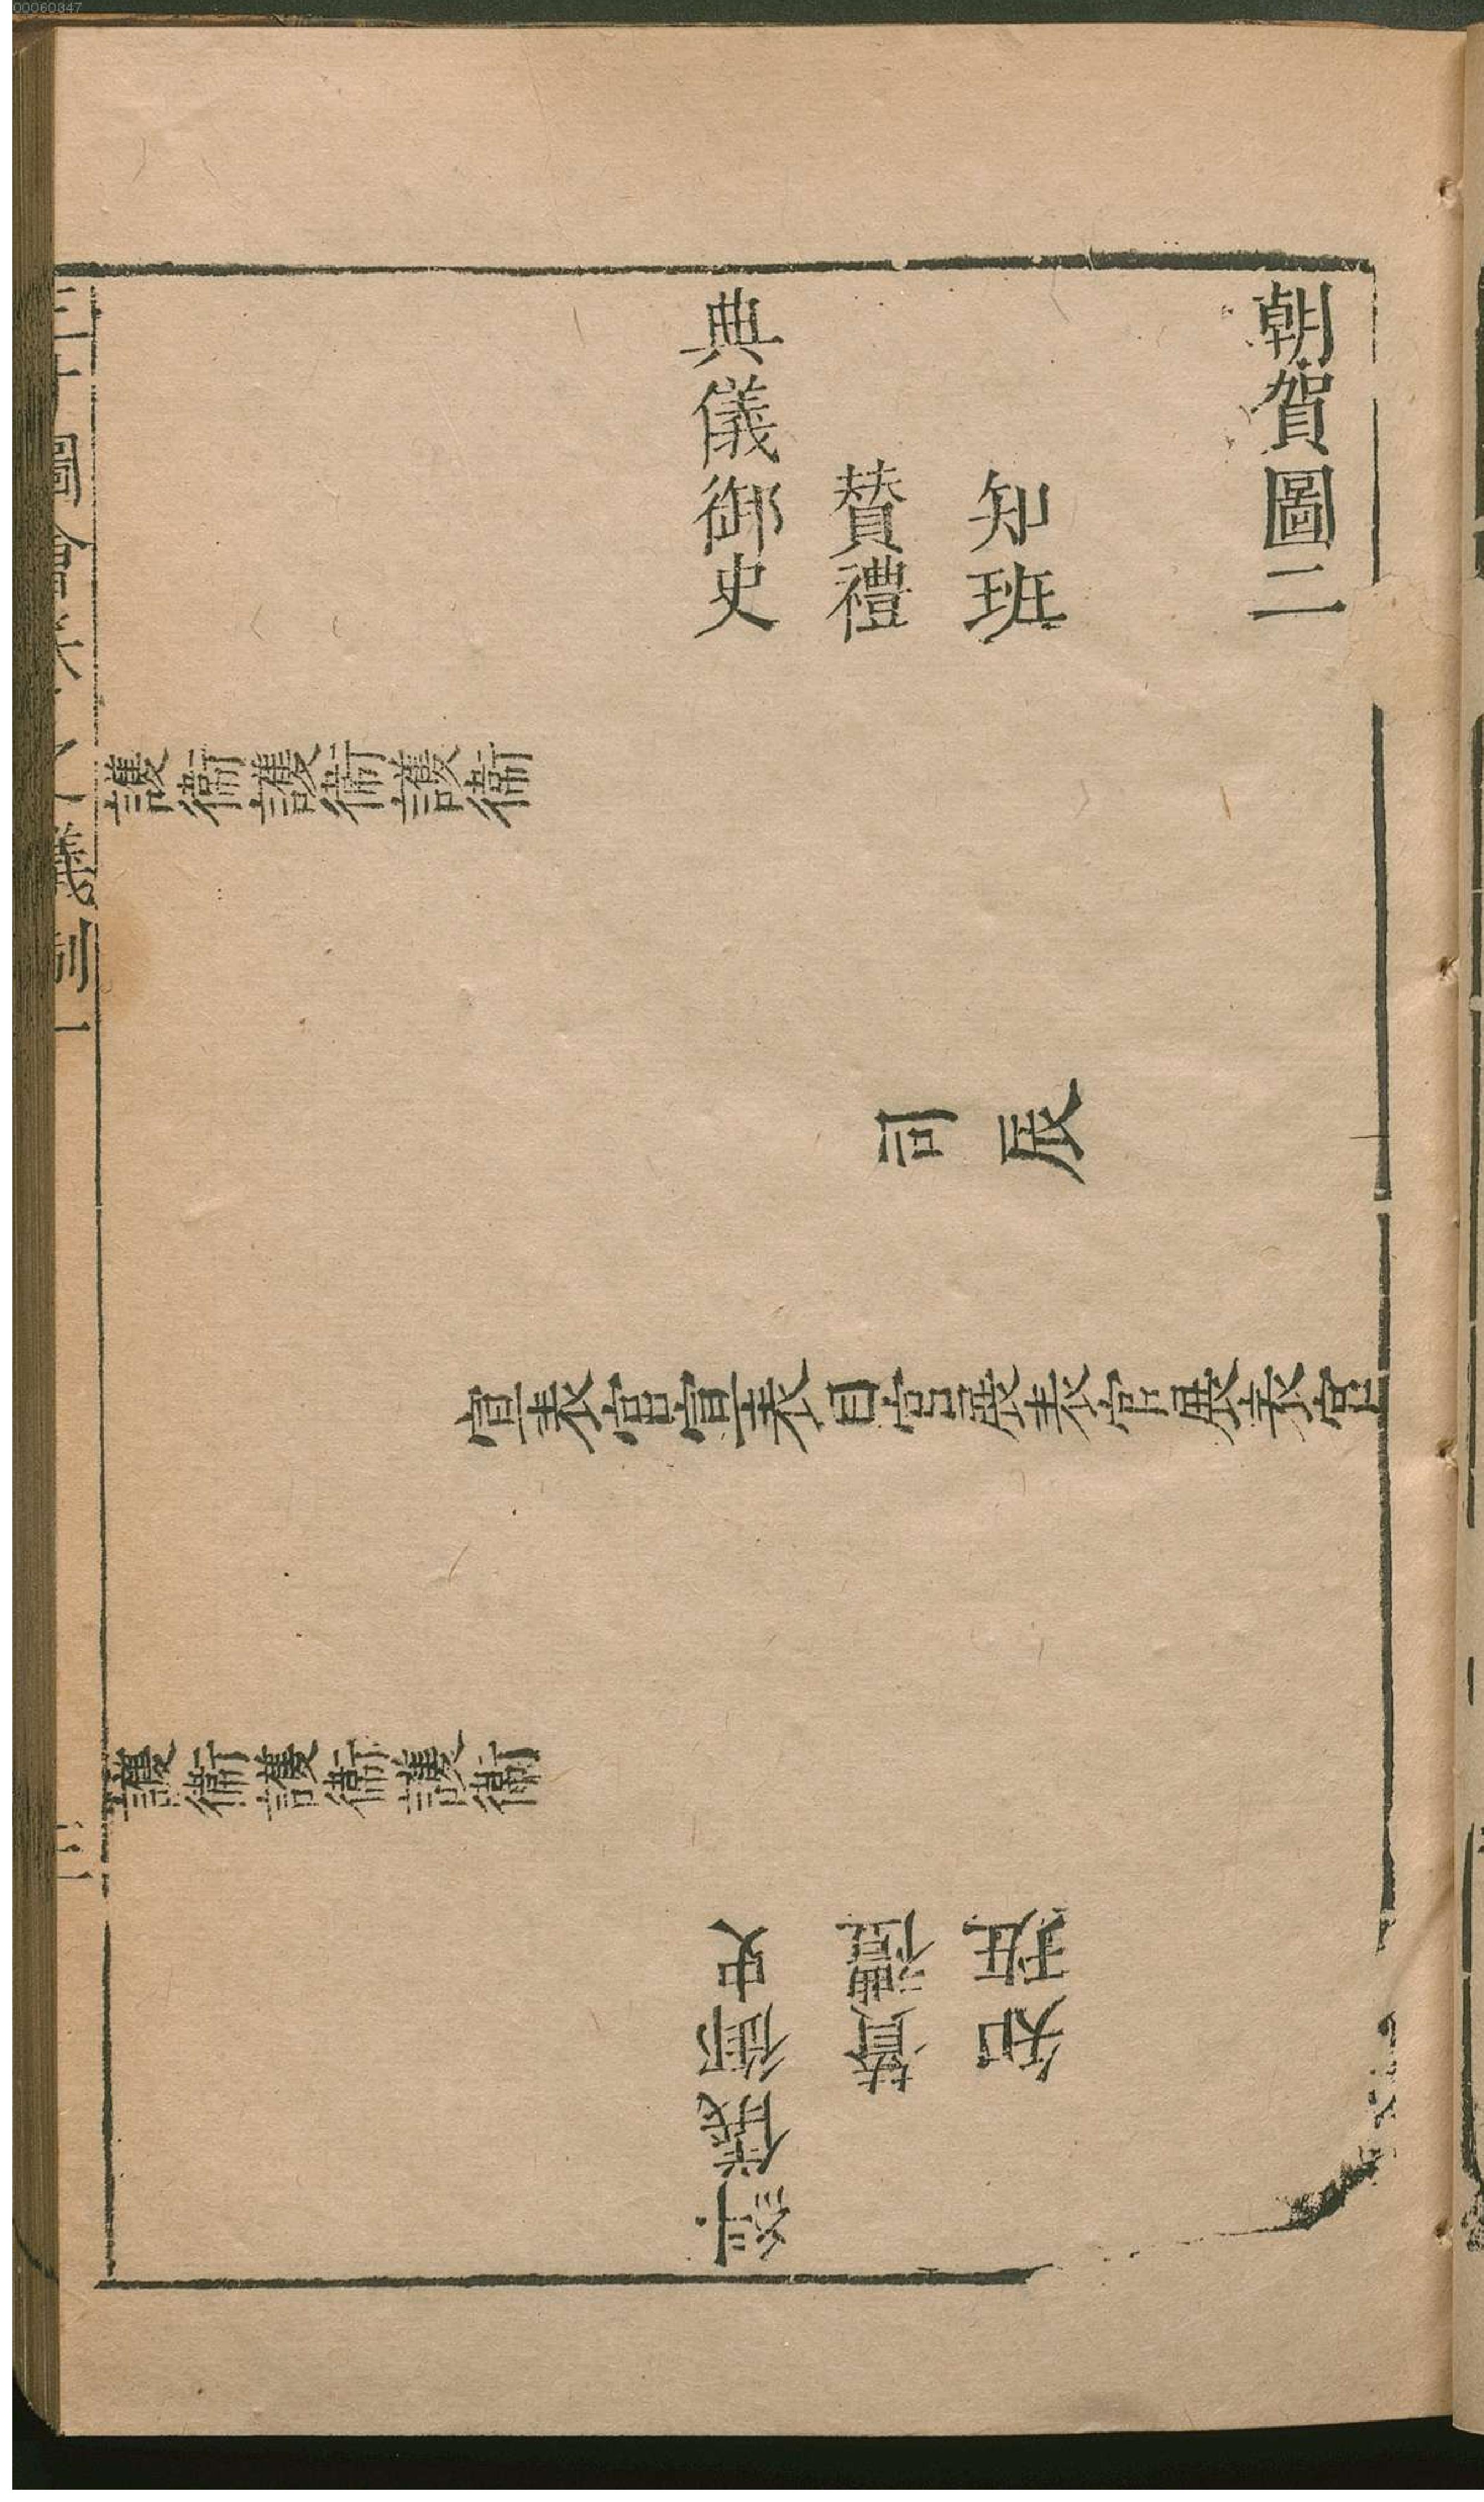 00060347
朝賀圖二
知班
賛禮
典儀御史
護衛護衛護衛
司辰
宣表官宣表目官展表官展表官
護衛護衛護衛
知班
賛禮
紏儀御史
圖會
儀制一
三